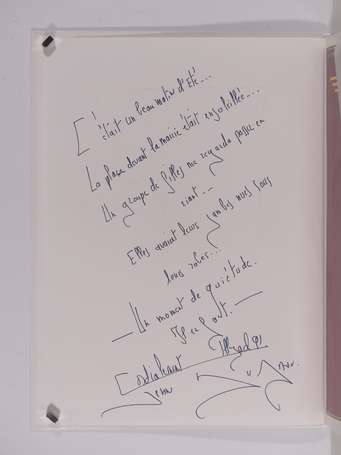 C'était un beau matin d'Eté...
La place devant la mairie était ensoleillée...
Un groupe de filles me regarda passer en
riant...
Elles avaient leurs jambes nues sous
leurs robes...
— Un moment de quiétude. —
Cordialement